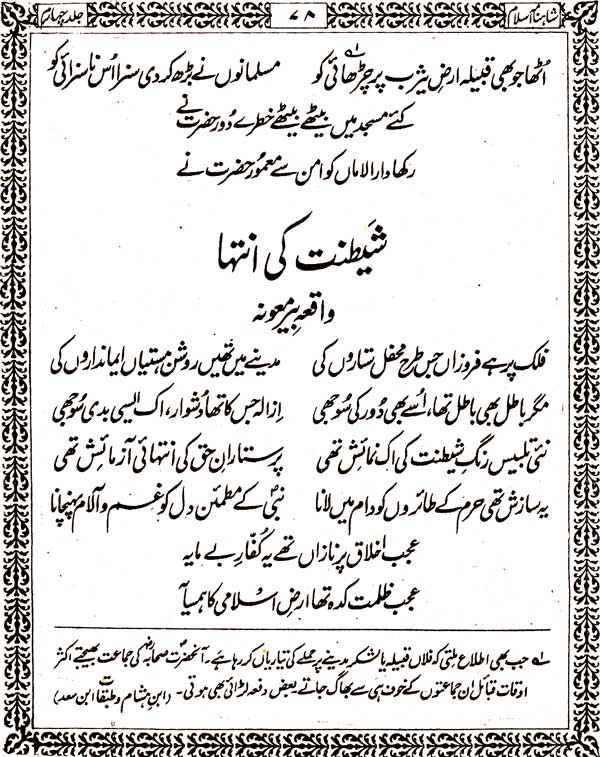 شاہنامہ اسلام ۷۸ جلد چہارم
اُٹھا جو بھی قبیلہ ارضِ یثرب پر چڑھائی کو ؎۱ مسلمانوں نے بڑھ کر دی سزا اُس ناسزائی کو
کئے مسجد میں بیٹھے بیٹھے خطرے دُور حضرت نے
رکھا دارالاماں کو امن سے معمور حضرت نے
شیَطنت کی انتہا
واقعہ بیر معونہ
فلک پر ہے فروزاں جس طرح محفل ستاروں کی مدینے میں تھیں روشن ہستیاں ایمانداروں کی
مگر باطل بھی باطل تھا، اُسے بھی دُور کی سُوجھی اِزالہ جس کا تھا دُشوار، اک ایسی بدی سُوجھی
نئی تلبیس رنگِ شیطنت کی اک نمائش تھی پرستارانِ حق کی انتہائی آزمائش تھی
یہ سازش تھی حرم کے طائروں کو دام میں لانا نبیؐ کے مطمئن دل کو غم و آلام پہنچانا
عجب اخلاق پر نازاں تھے یہ کُفّارِ بے مایہ
عجب ظلمت کدہ تھا ارضِ اسلامی کا ہمسایہ
؎۱ جب بھی اطلاع ملتی کہ فلاں قبیلہ یا لشکر مدینے پر حملے کی تیاریاں کر رہا ہے۔ آنحضرتؐ صحابہؓ کی جماعت بھیجتے اکثر
اوقات قبائل ان جماعتوں کے خوف ہی سے بھاگ جاتے بعض دفعہ لڑائی بھی ہوتی۔ (ابنِ ہشام و طبقات ابن سعد)